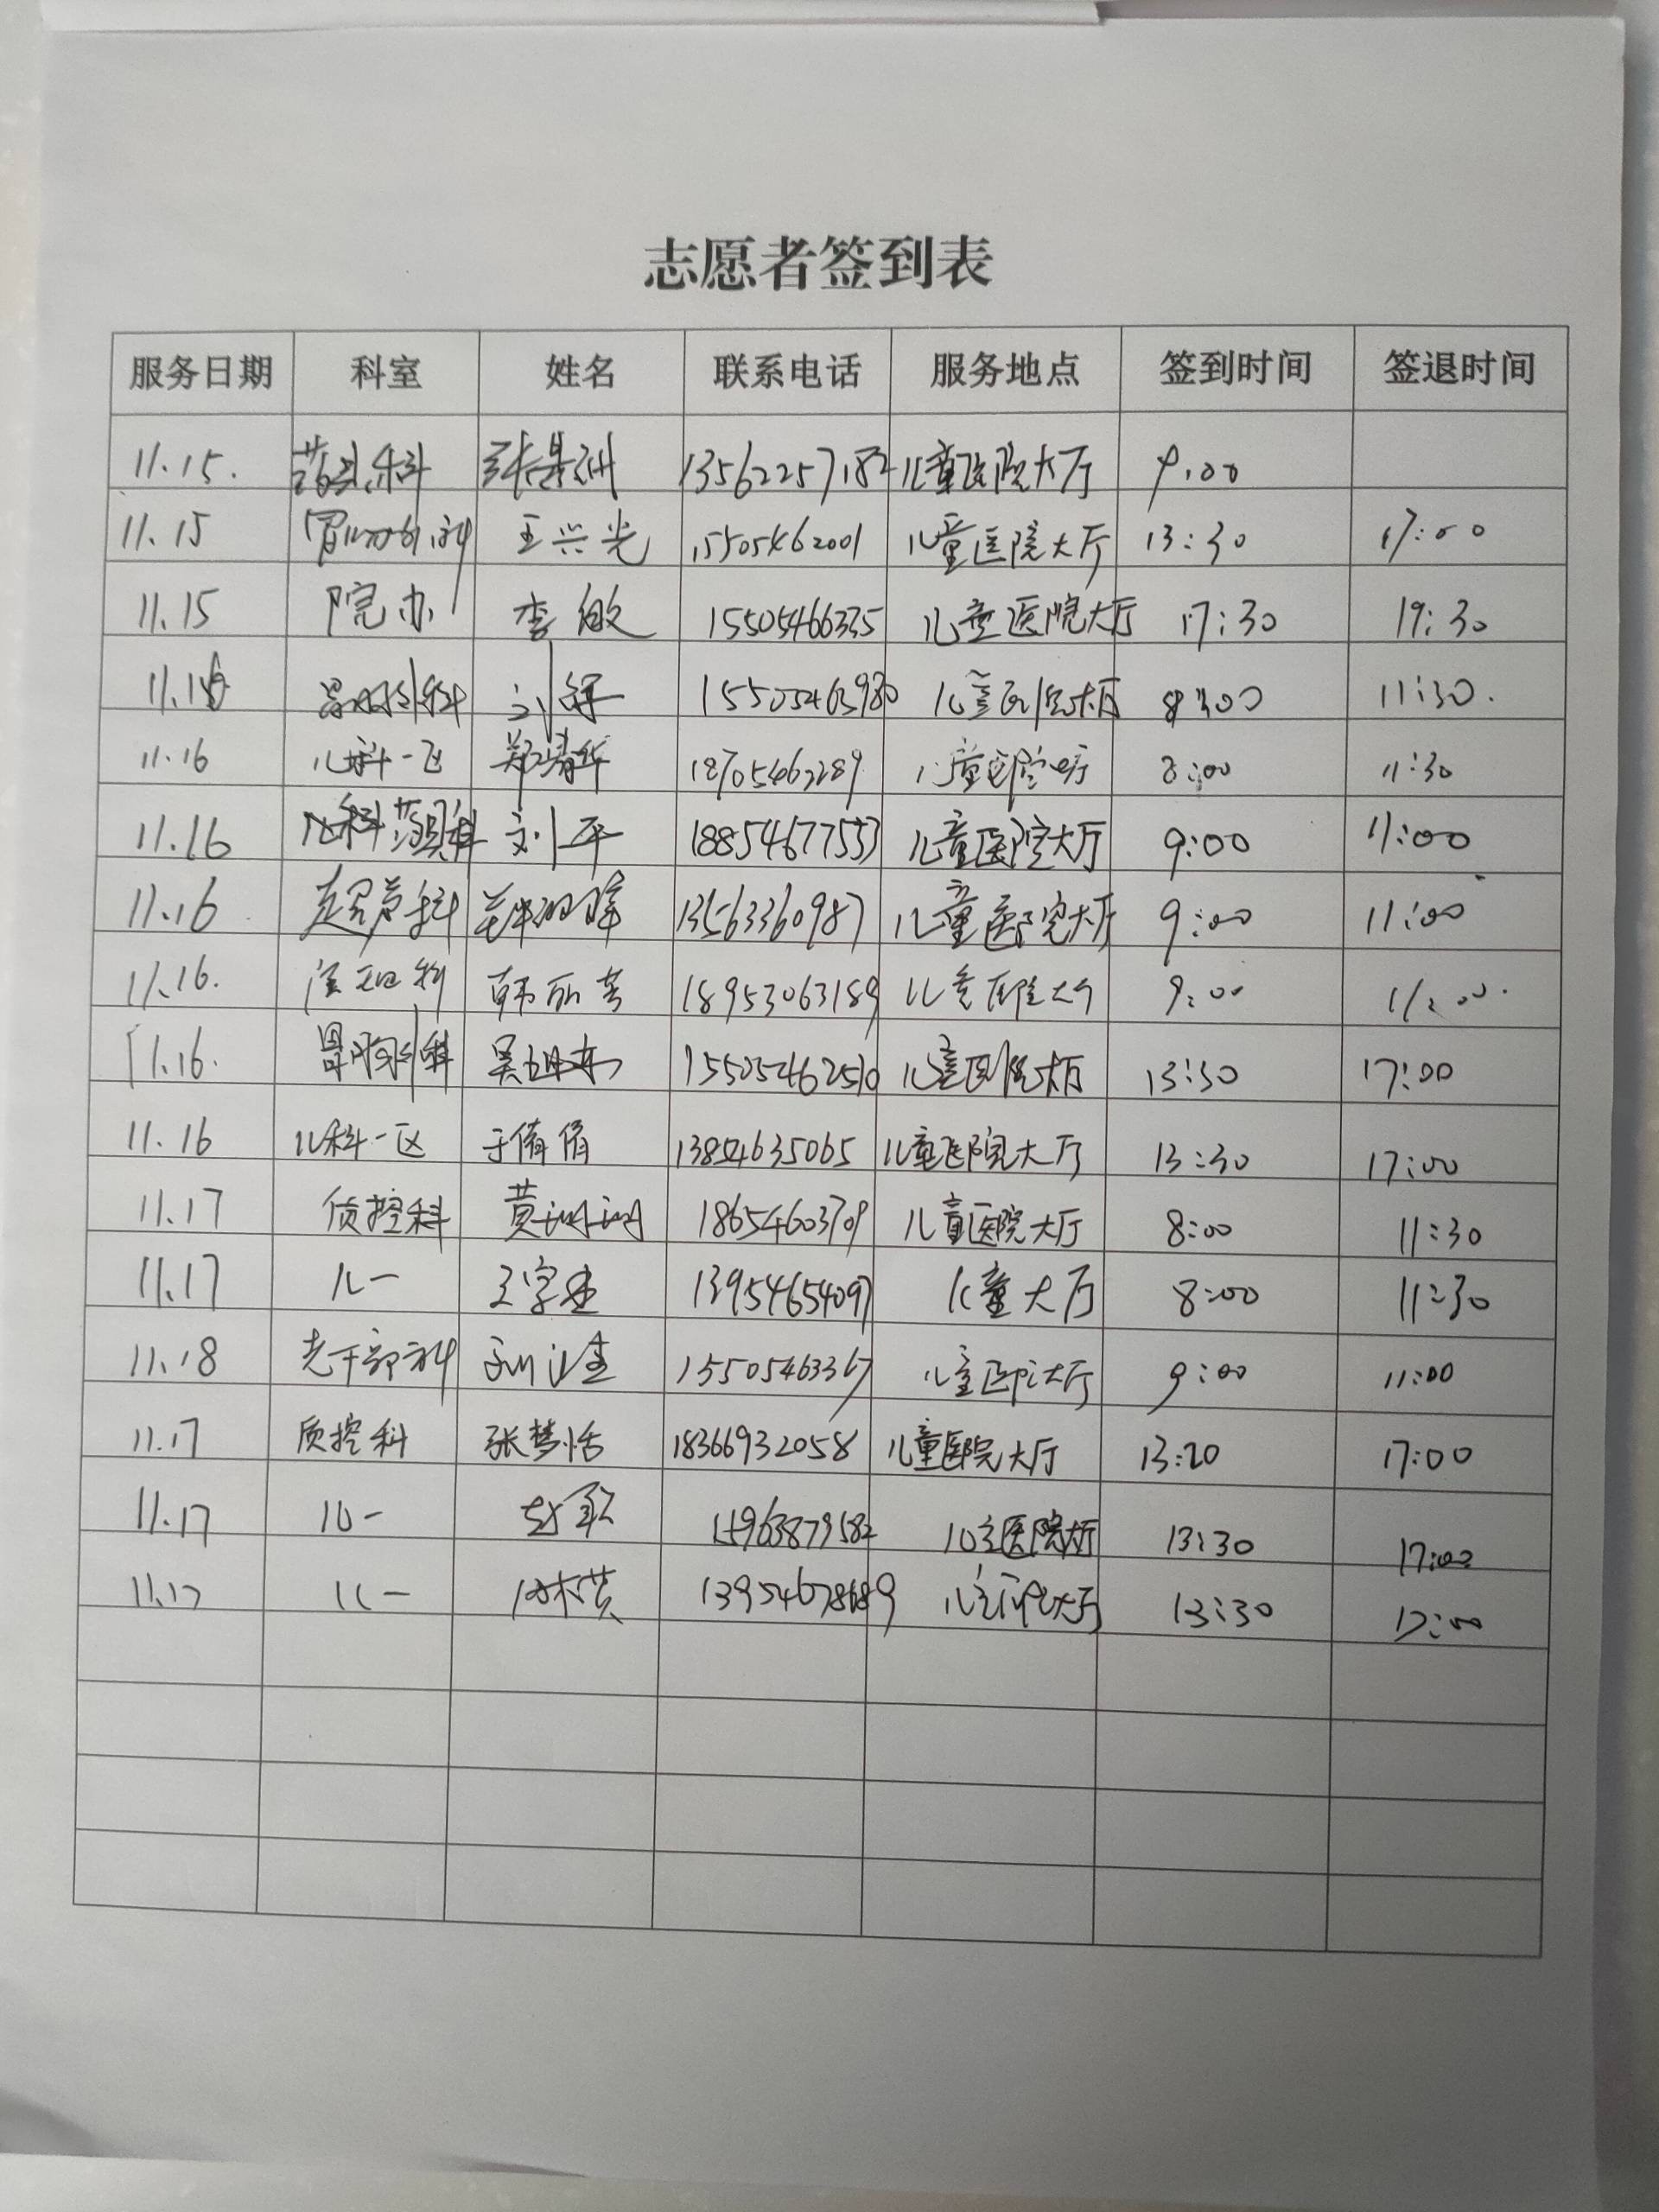 志愿者签到表
服务日期 科室 姓名 联系电话 服务地点 签到时间 签退时间
11.15. 药具科 13562257182 儿童医院大厅 9:00
11.15 胃肠外科 王兴光 15505462001 儿童医院大厅 13:30 17:00
11.15 院办 李敏 15505466335 儿童医院大厅 17:30 19:30
胃肠外科 15505463980 儿童医院大厅 8:00 11:30.
11.16 儿科一区 郑清华 18705462289 儿童医院大厅 8:00 11:30
11.16 刘平 18854677553 儿童医院大厅 9:00 11:00
11.16 超声科 13563360987 儿童医院大厅 9:00 11:00
11.16. 18953063189 儿童医院大厅 9:00 11:00.
11.16. 胃肠外科 15505462510 儿童医院大厅 13:30 17:00
11.16 儿科一区 于倩倩 13854635065 儿童医院大厅 13:30 17:00
11.17 质控科 黄 18654603709 儿童医院大厅 8:00 11:30
11.17 儿一 13954654097 儿童大厅 8:00 11:30
11.18 老干部科 15505463367 儿童医院大厅 9:00 11:00
11.17 质控科 张梦恬 18366932058 儿童医院大厅 13:20 17:00
11.17 儿一 儿童医院大厅 13:30 17:00
11.17 儿一 13954678689 儿童医院大厅 13:30 17:00